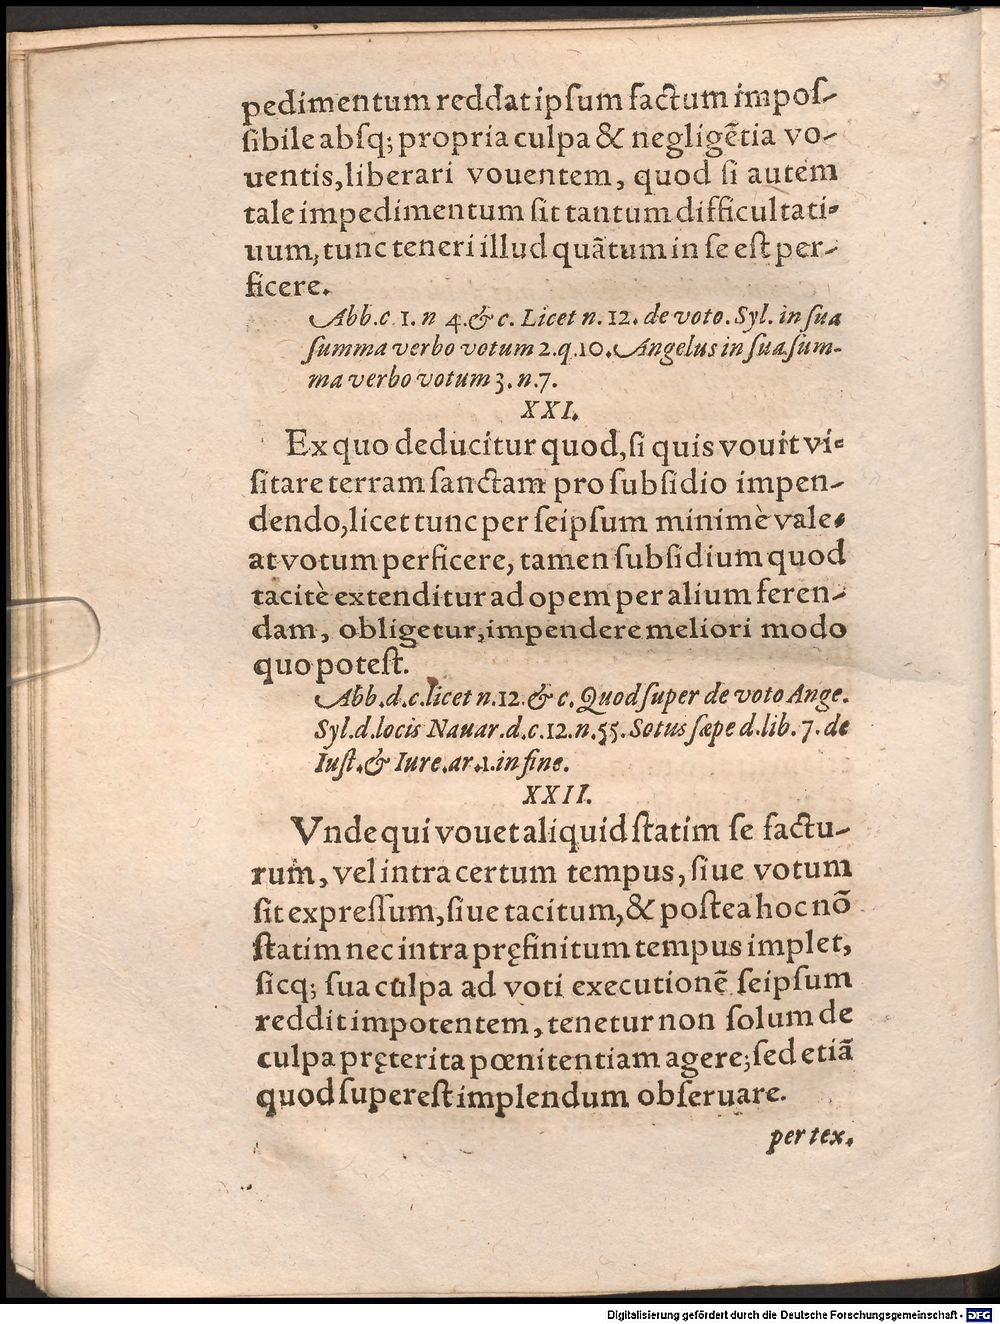 pedimentum reddat ipſum factum impoſ-
ſibile abſq; propria culpa & negligẽtia vo-
uentis, liberari vouentem, quod ſi autem
tale impedimentum ſit tantum difficultati-
uum, tunc teneri illud quãtum in ſe eſt per-
ficere.
Abb. c. 1. n 4. & c. Licet n. 12. de voto. Syl. in ſua
ſumma verbo votum 2. q. 10. Angelus in ſua ſum-
ma verbo votum 3. n. 7.
XXI.
Ex quo deducitur quod, ſi quis vouit vi-
ſitare terram ſanctam pro ſubſidio impen-
dendo, licet tunc per ſeipſum minimè vale-
at votum perficere, tamen ſubſidium quod
tacitè extenditur ad opem per alium feren-
dam, obligetur, impendere meliori modo
quo poteſt.
Abb. d. c. licet n. 12. & c. Quod ſuper de voto Ange.
Syl. d. locis Nauar. d. c. 12. n. 55. Sotus ſæpe d. lib. 7. de
Iuſt. & Iure. ar. 1. in fine.
XXII.
Vnde qui vouet aliquid ſtatim ſe factu-
rum, vel intra certum tempus, ſiue votum
ſit expreſſum, ſiue tacitum, & poſtea hoc nõ
ſtatim nec intra pręfinitum tempus implet,
ſicq; ſua culpa ad voti executionẽ ſeipſum
reddit impotentem, tenetur non ſolum de
culpa pręterita pœnitentiam agere; ſed etiã
quod ſupereſt implendum obſeruare.
per tex.
Digitalisierung gefördert durch die Deutsche Forschungsgemeinschaft - DFG